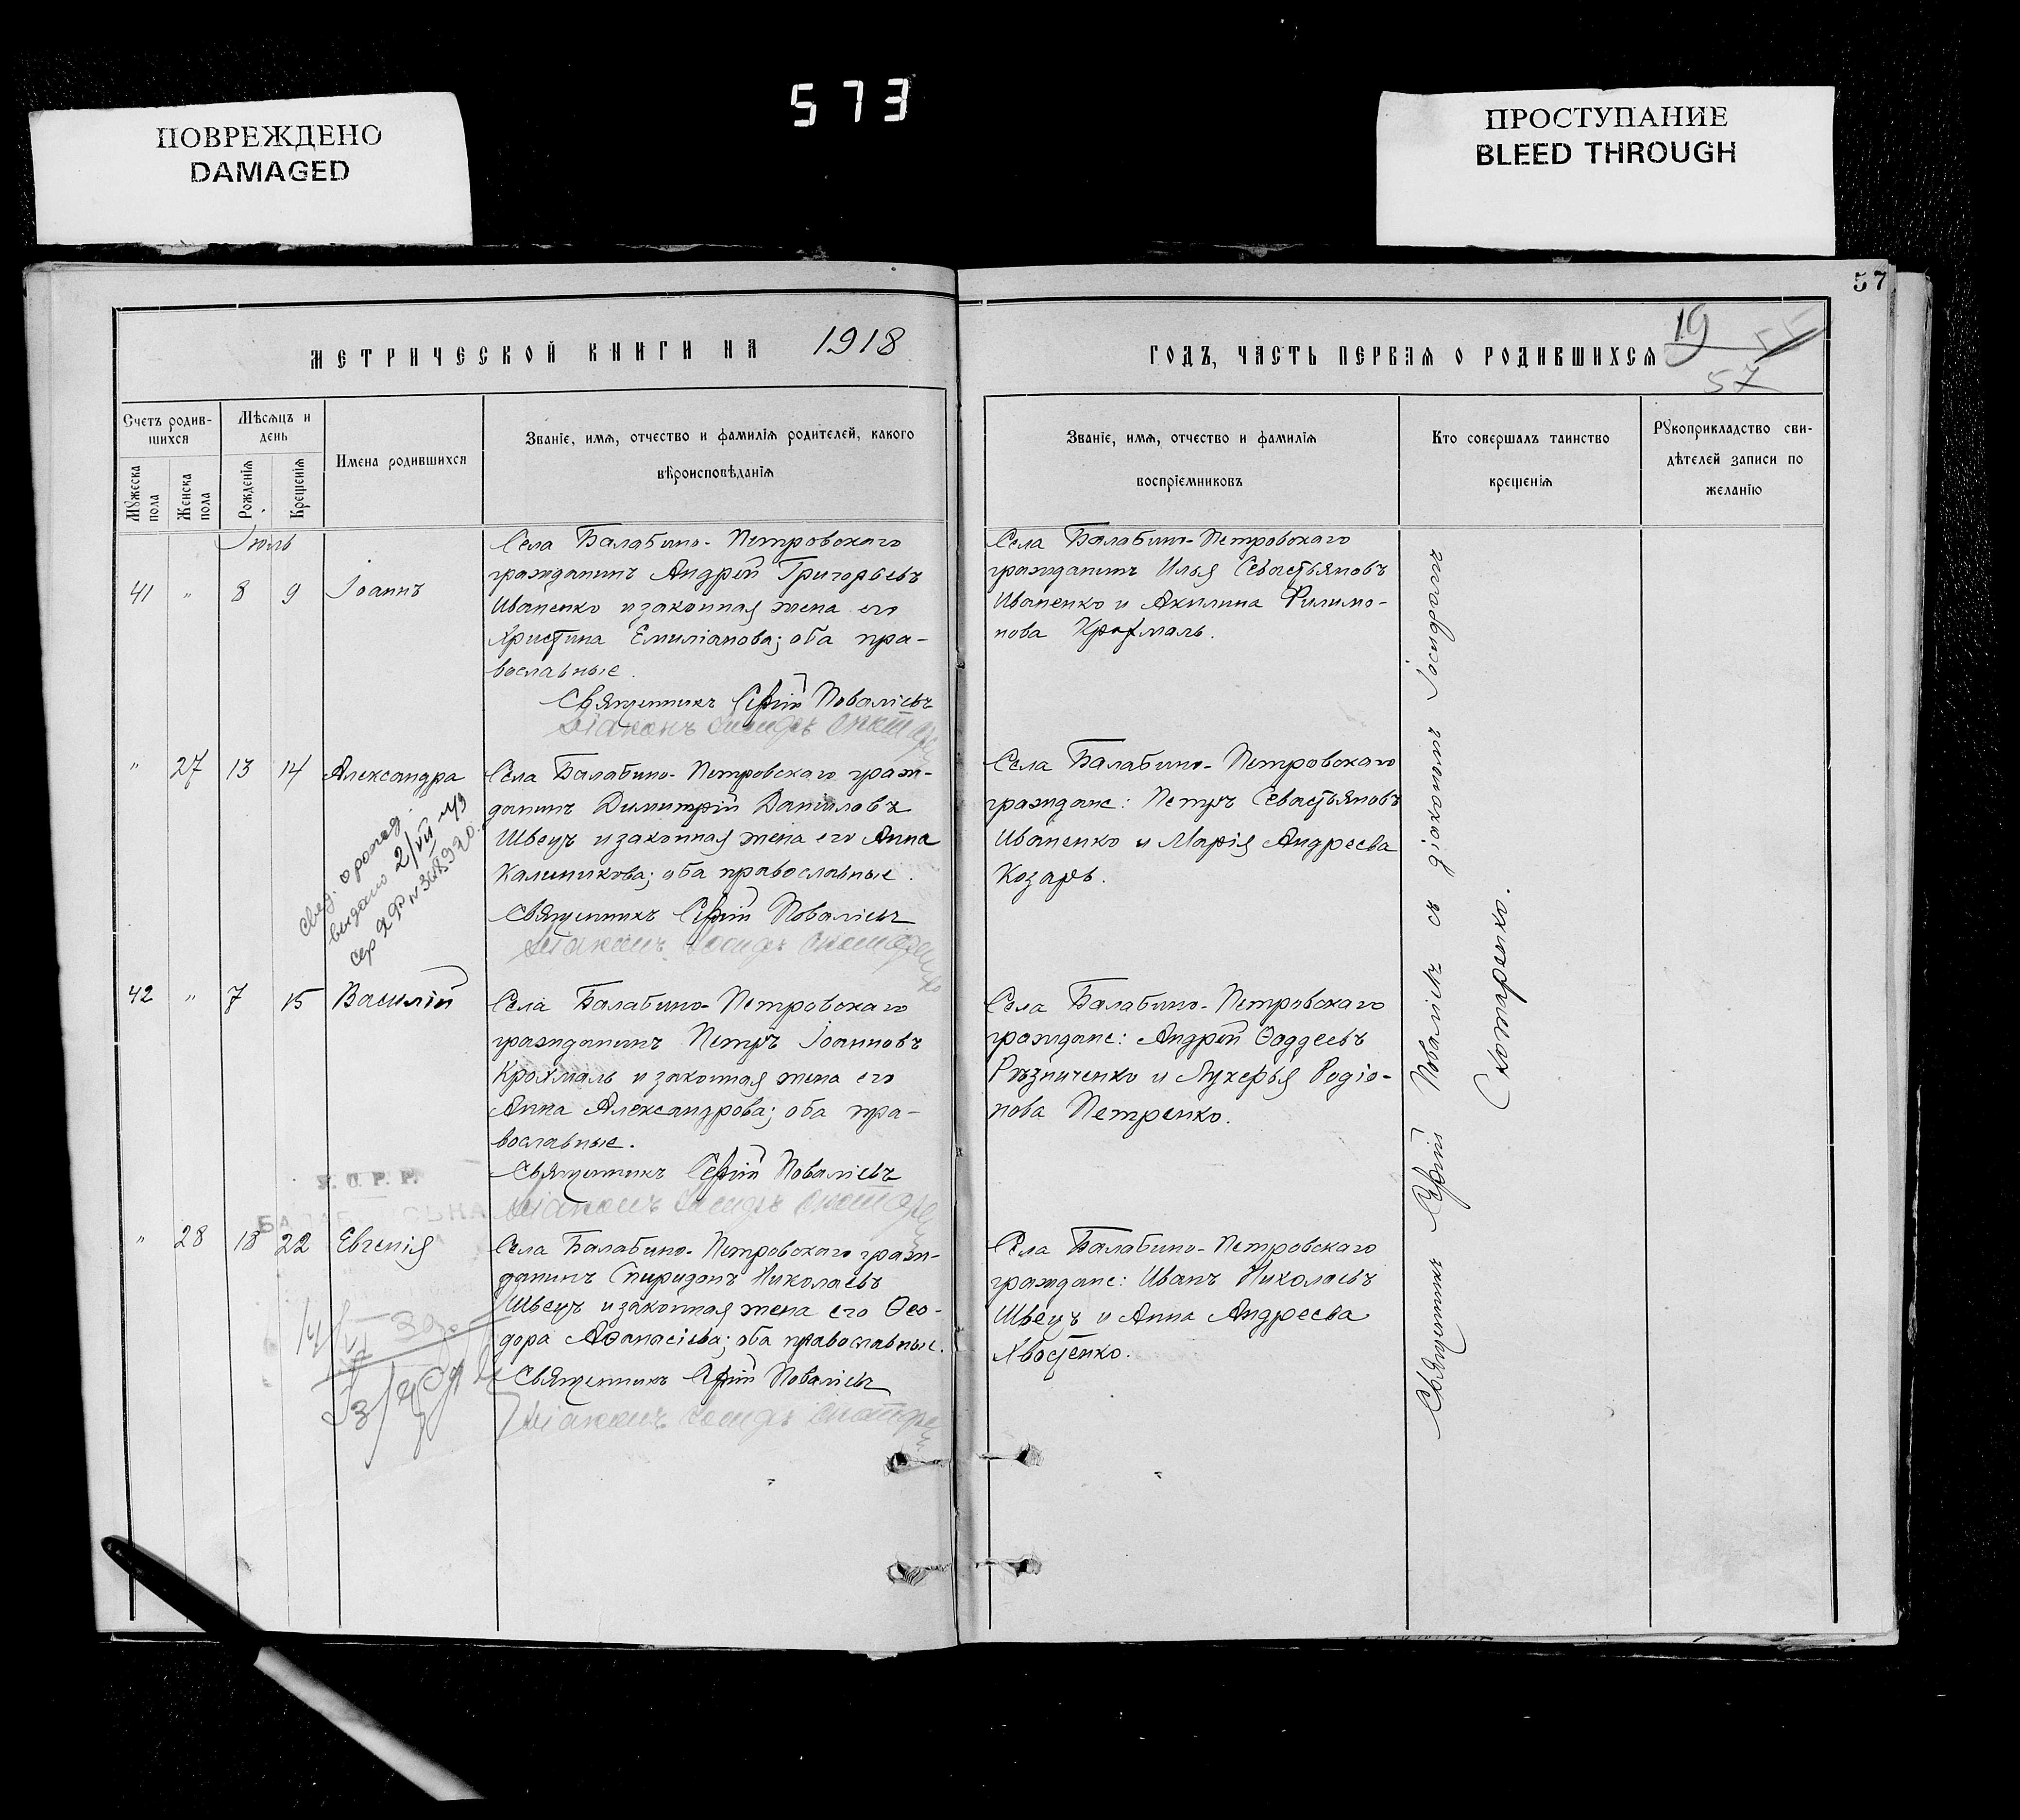 573
ПОВРЕЖДЕНО
DAMAGED
ПРОСТУПАНИЕ
BLEED THROUGH
57
МЕТРИЧЕСКОЙ КНИГИ НА 1918
ГОДЪ, ЧАСТЬ ПЕРВАЯ О РОДИВШИХСЯ
19
57
Счетъ родив-
шихся
Мѣсяцъ и
день
Мужеска
пола
Женска
пола
Рожденія
Крещенія
Имена родившихся
Званіе, имя, отчество и фамилія родителей, какого
вѣроисповѣданія
Званіе, имя, отчество и фамилія
воспріемниковъ
Кто совершалъ таинство
крещенія
Рукоприкладство сви-
дѣтелей записи по
желанію
Іюль
41 " 8 9 Іоаннъ
Села Балабино-Петровскаго
гражданинъ Андрей Григорьевъ
Иваненко и законная жена его
Христина Емиліанова; оба пра-
вославные.
Священникъ Сергій Поваліевъ
Діаконъ
Села Балабино-Петровскаго
гражданинъ Илья Севастьяновъ
Иваненко и Акилина Филимо-
нова Крохмаль.
" 27 13 14 Александра
свед. о рожд.
выдано 2/VII
Села Балабино-Петровскаго граж-
данинъ Димитрій Даніиловъ
Швецъ и законная жена его Анна
Калиникова; оба православные.
Священникъ Сергій Поваліевъ
Діаконъ
Села Балабино-Петровскаго
граждане: Петръ Севастьяновъ
Иваненко и Марія Андреева
Козарь.
42 " 7 15 Василій
Села Балабино-Петровскаго
гражданинъ Петръ Іоанновъ
Крохмаль и законная жена его
Анна Александрова; оба пра-
вославные.
Священникъ Сергій Поваліевъ
Діаконъ
Села Балабино-Петровскаго
граждане: Андрей Ѳаддеевъ
Рѣзниченко и Лукерья Родіо-
нова Петренко.
" 28 18 22 Евгенія
Села Балабино-Петровскаго граж-
данинъ Спиридонъ Николаевъ
Швецъ и законная жена его Ѳео-
дора Аѳанасіева; оба православные.
Священникъ Сергій Поваліевъ
Діаконъ
Села Балабино-Петровскаго
граждане: Иванъ Николаевъ
Швецъ и Анна Андреева
Хвостенко.
Священникъ Сергій Поваліевъ съ діакономъ Іосифомъ
Скотаренко.